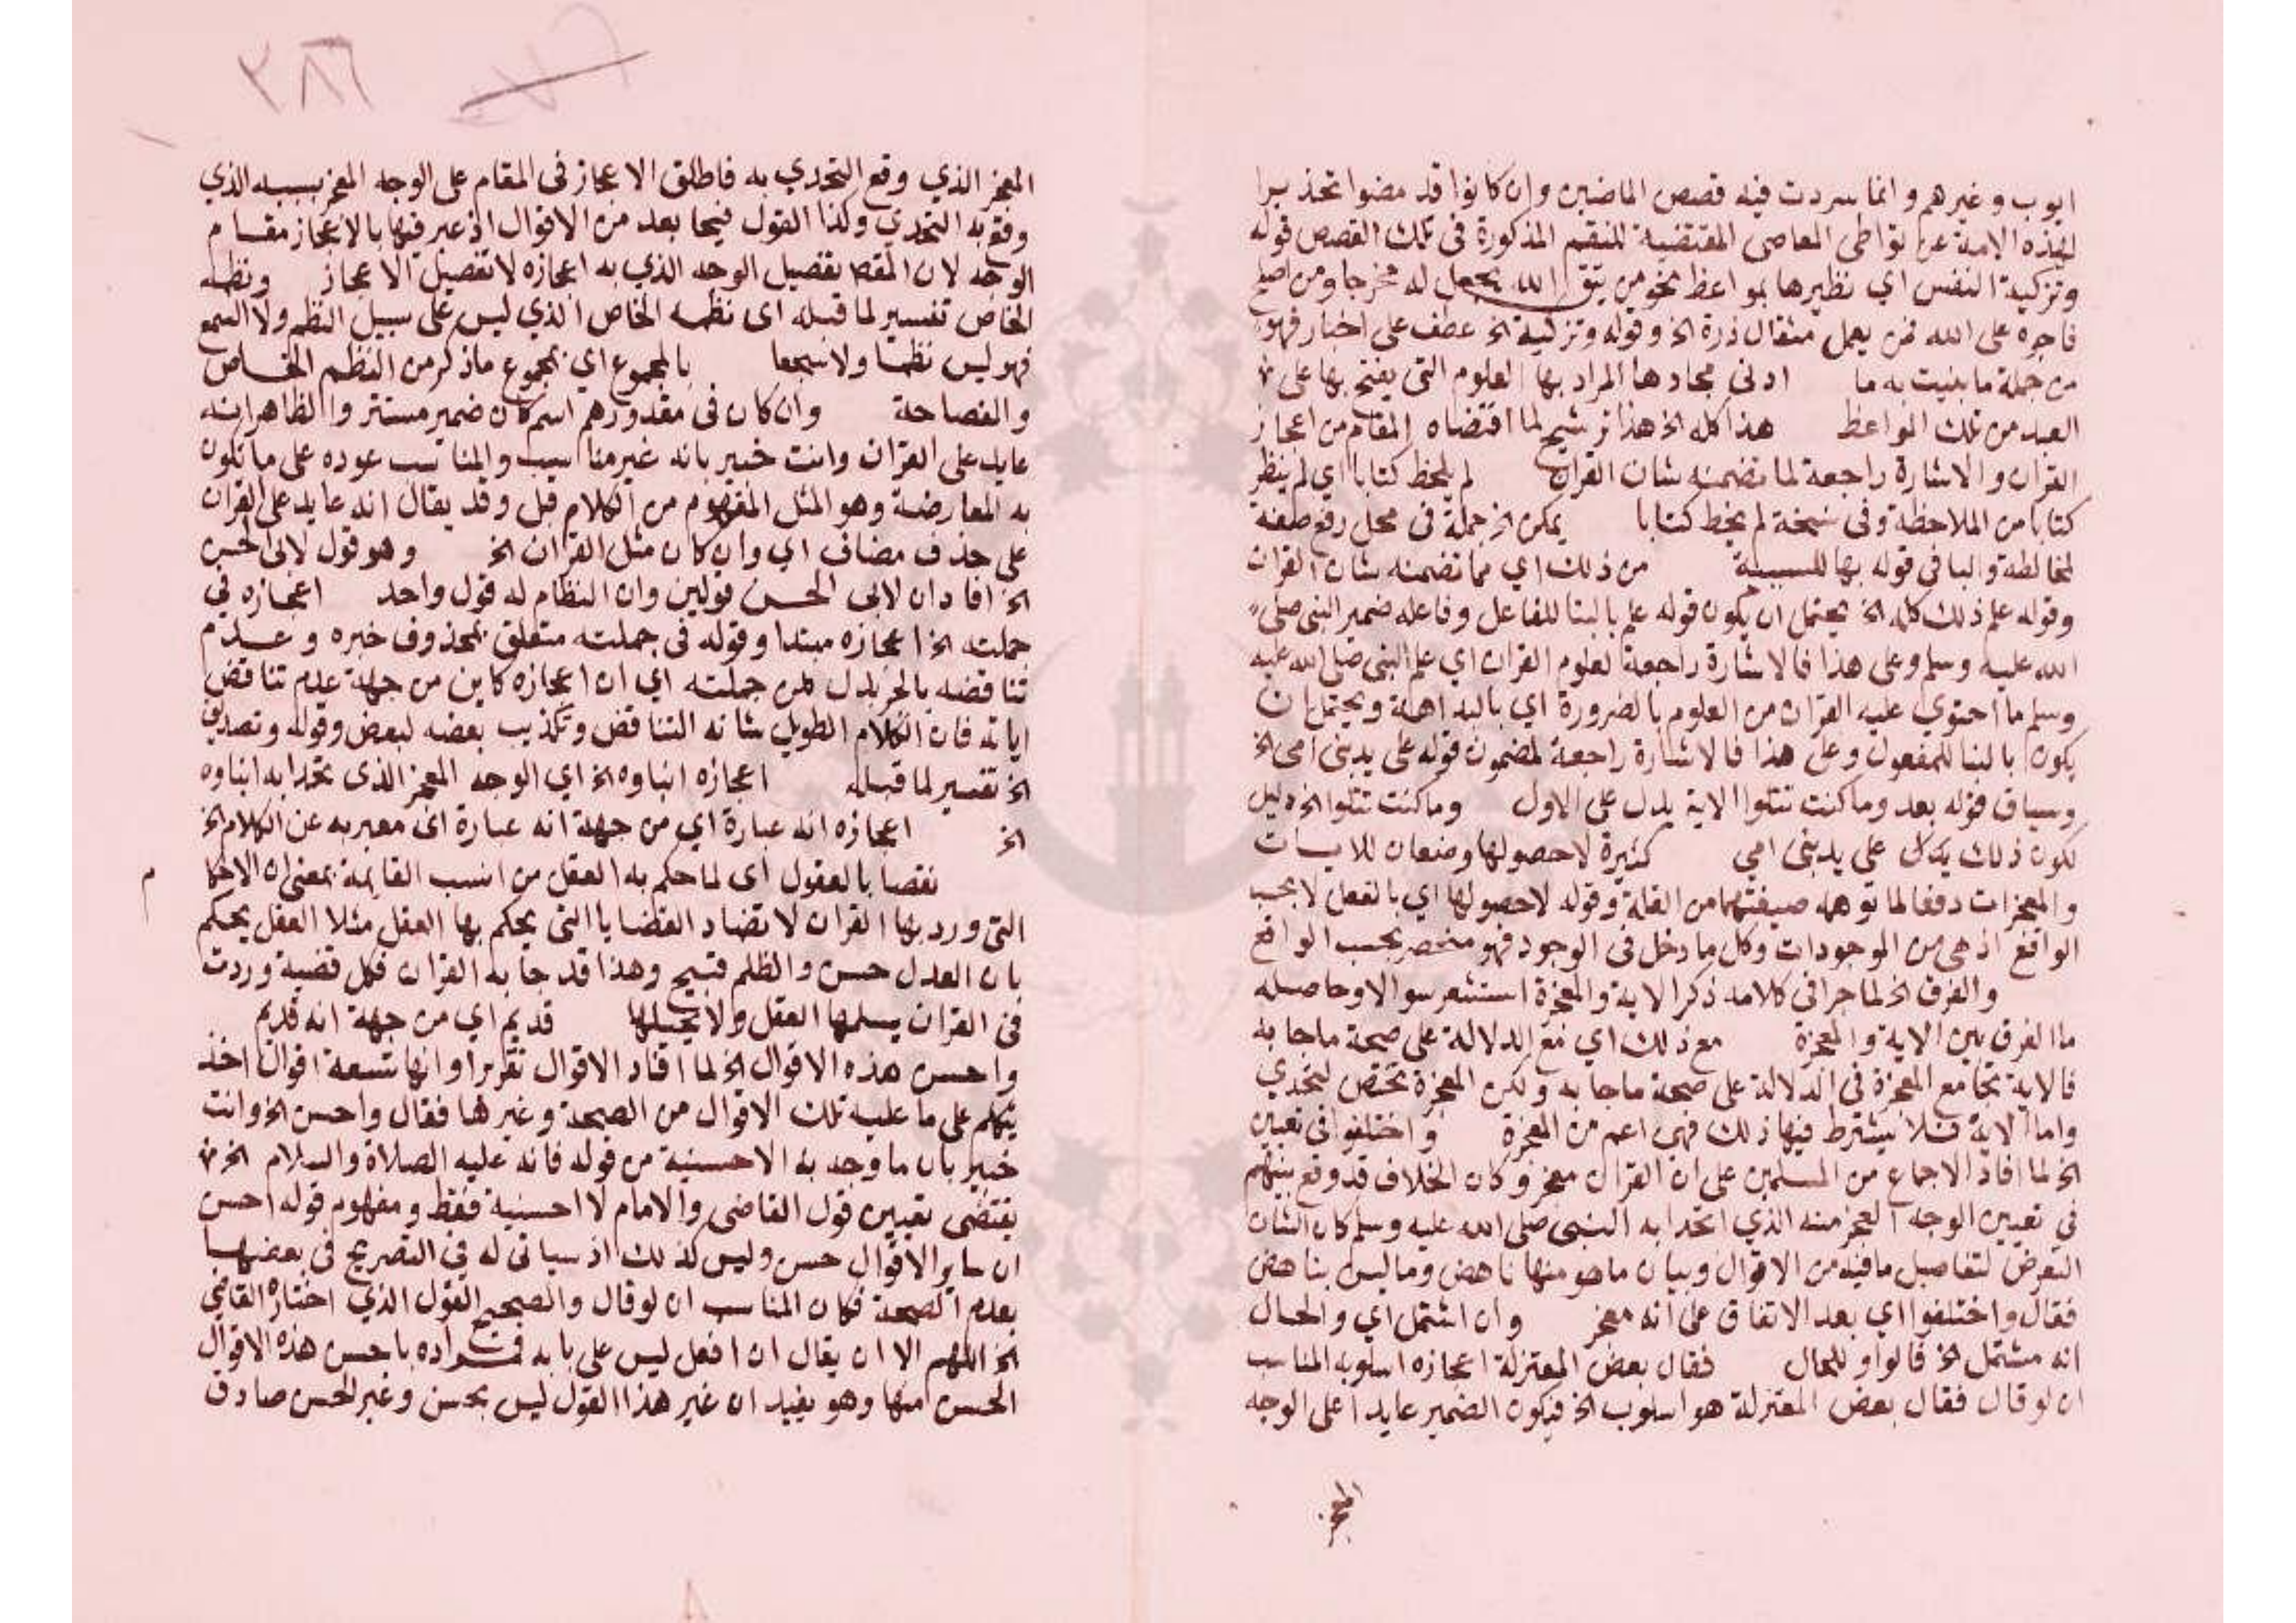 ايوب وغيرهم وانما سردت فيه قصص الماضين وان كانوا قد مضوا تحذيرا
لهذه الامة عن تواطى المعاصى المقتضية المنقم المذكورة فى تلك القصص قوله
وتزكية النفس اي تطهيرها بمواعظ نحو من يتق الله يجعل له مخرجا ومن اصلح
فاجره على الله فمن يعمل مثقال ذرة الخ وقوله وتزكية الخ عطف على اخبار فهو
من جملة ما بنيت به ما ادنى مجادها المراد بها العلوم التى يفتح بها على
العبد من تلك المواعظ هذا كله الخ هذا ترشيح لما اقتضاه المقام من اعجاز
القران والاشارة راجعة لما تضمنه شان القران لم يلحظ كتابا اي لم ينظر
كتابا من الملاحظة وفى نسخة لم يخط كتابا يمكن الخ جملة فى محل رفع صفة
لمخالطة والبا فى قوله بها للسببية من ذلك اي مما تضمنه شان القران
وقوله علم ذلك كله الخ يحتمل ان يكون قوله علم بالبنا للفاعل وفاعله ضمير النبى صلى
الله عليه وسلم وعلى هذا فالاشارة راجعة لعلوم القران اي علم النبى صلى الله عليه
وسلم ما احتوي عليه القران من العلوم بالضرورة اي بالبداهة ويحتمل ان
يكون بالبنا للمفعول وعلى هذا فالاشارة راجعة لمضمون قوله على يد نبى امى الخ
وسياق قوله بعد وما كنت تتلوا الاية يدل على الاول وما كنت تتلوا الخ دليل
لكون ذلك يدل على يد نبى امي كثيرة لا حصولها وصنعان للايات
والمعجزات دفعا لما توهمه صيغتهما من القلة وقوله لا حصولها اي بالفعل لا بحسب
الواقع اذ هى من الموجودات وكل ما دخل فى الوجود فهو منحصر بحسب الواقع
والفرق الخ لما جرا فى كلامه ذكر الاية والمعجزة استشعر سوالا وحاصله
ما الفرق بين الاية والمعجزة مع ذلك اي مع الدلالة على صحة ما جا به
فالاية تجامع المعجزة فى الدلالة على صحة ما جا به ولكن المعجزة تختص لتحدي
واما الاية فلا يشترط فيها ذلك فهى اعم من المعجزة واختلفوا فى تعيين
الخ لما افاد الاجماع من المسلمين على ان القران معجز وكان الخلاف قد وقع بينهم
فى تعيين الوجه المعجز منه الذي اتحدا به النبى صلى الله عليه وسلم كان الشان
التعرض لتفاصيل ما فيه من الاقوال وبيان ما هو منها ناهض وما ليس بناهض
فقال واختلفوا اي بعد الاتفاق على انه معجز وان اشتمل اي والحال
انه مشتمل الخ فالواو للحال فقال بعض المعتزلة اعجازه اسلوبه المناسب
ان لو قال فقال بعض المعتزلة هو اسلوب الخ فيكون الضمير عايدا على الوجه
المعجز
٢٨٦
المعجز الذي وقع التحدي به فاطلق الاعجاز فى المقام على الوجه المعجز بسببه الذي
وقع به التحدي وكذا القول فيما بعد من الاقوال اذ عبر فيها بالاعجاز مقام
الوجه لان المقص تفصيل الوجه الذي به اعجازه لا تفصيل الاعجاز ونظمه
الخاص تفسير لما قبله اى نظمه الخاص الذي ليس على سبيل النظم ولا السجع
فهو ليس نظما ولا سجعا بالمجموع اي بمجموع ما ذكر من النظم الخاص
والفصاحة وان كان فى مقدورهم اسم كان ضمير مستتر والظاهر انه
عايد على القران وانت خبير بانه غير مناسب والمناسب عوده على ما تكون
به المعارضة وهو المثل المفهوم من الكلام قبل وقد يقال انه عايد على القران
على حذف مضاف اي وان كان مثل القران الخ وهو قول لابى الحسن
الخ افاد ان لابى الحسن قولين وان النظام له قول واحد اعجازه فى
جملته الخ اعجازه مبتدا وقوله فى جملته متعلق بمحذوف خبره وعدم
تناقضه بالجر بدل من جملته اي ان اعجازه كاين من جهة عدم تناقض
اياته فان الكلام الطويل شانه التناقض وتكذيب بعضه لبعض وقوله وتصديق
الخ تفسير لما قبله اعجازه انباوه الخ اي الوجه المعجز الذى تحدا به انباوه
الخ اعجازه انه عبارة اي من جهة انه عبارة اى معبر به عن الكلام الخ
نقصا بالعقول اى لما حكم به العقل من النسب القايمة بمعنى ان الاحكام
التى ورد بها القران لا تضاد القضايا التى يحكم بها العقل مثلا العقل يحكم
بان العدل حسن والظلم قبيح وهذا قد جا به القران فكل قضية وردت
فى القران يسلمها العقل ولا يحيلها قديم اي من جهة انه قديم
واحسن هذه الاقوال الخ لما افاد الاقوال تقريرا وانها تسعة اقوال اخذ
يتكلم على ما عليه تلك الاقوال من الصحة وغيرها فقال واحسن الخ وانت
خبير بان ما وجد به الاحسنية من قوله فانه عليه الصلاة والسلام الخ
يقتضى تعيين قول القاضى والامام لا احسنية فقط ومفهوم قوله احسن
ان ساير الاقوال حسن وليس كذلك اذ سياتى له فى التصريح فى بعضها
بعدم الصحة فكان المناسب ان لو قال والصحيح القول الذي اختاره القاضي
الخ اللهم الا ان يقال ان افعل ليس على بابه فمراده باحسن هذه الاقوال
الحسن منها وهو يفيد ان غير هذا القول ليس بحسن وغير الحسن صادق